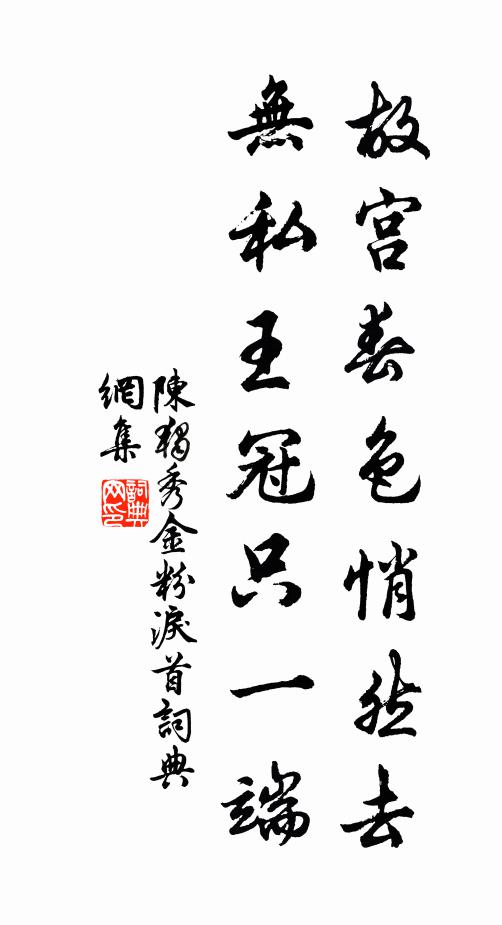 故宫春色悄然去
無私王冠只一端
陳獨秀金粉淚首詞典
網集
詞典
网印